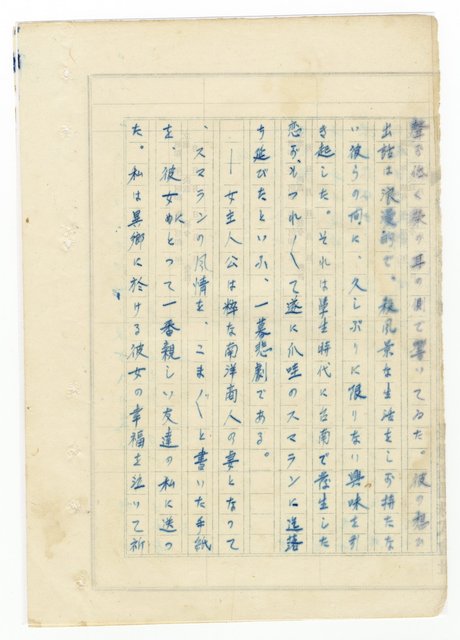 聲が低く私の耳の側で響いてゐた。彼の想ひ
出話は浪漫的で、殺風景な生活をしか持たな
い彼らの間に、久しぶりに限りない興味をひ
き起した。それは學生時代に台南で發生した
恋が、もつれ〳〵て遂に爪哇のスマランに逃落
ち延びたといふ、一幕悲劇である。
── 女主人公は粋な南洋商人の妻となつて
、スマランの風情を、こま〴〵と書いた手紙
を、彼女にとつて一番親しい友達の私に送つ
た。私は異郷に於ける彼女の幸福を泣いて祈